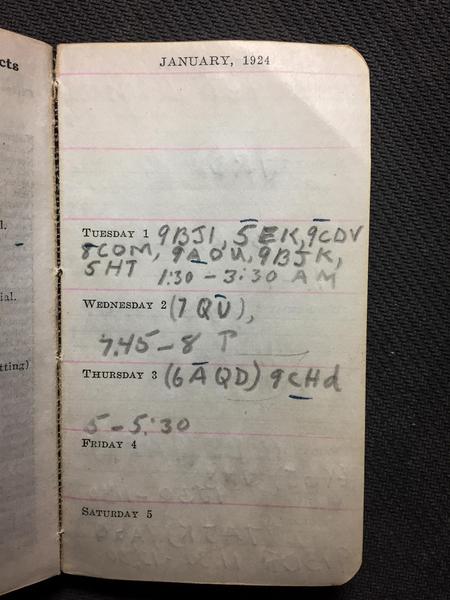 cts
JANUARY, 1924
TUESDAY 1 9BJI, 5EK, 9CDV
8COM, 9AOU, 9BJK,
5HT 1:30 - 3:30 AM
ial.
WEDNESDAY 2 (7QU),
7.45 - 8 P
tting)
THURSDAY 3 (6AQD) 9CHd
5 - 5:30
FRIDAY 4
SATURDAY 5